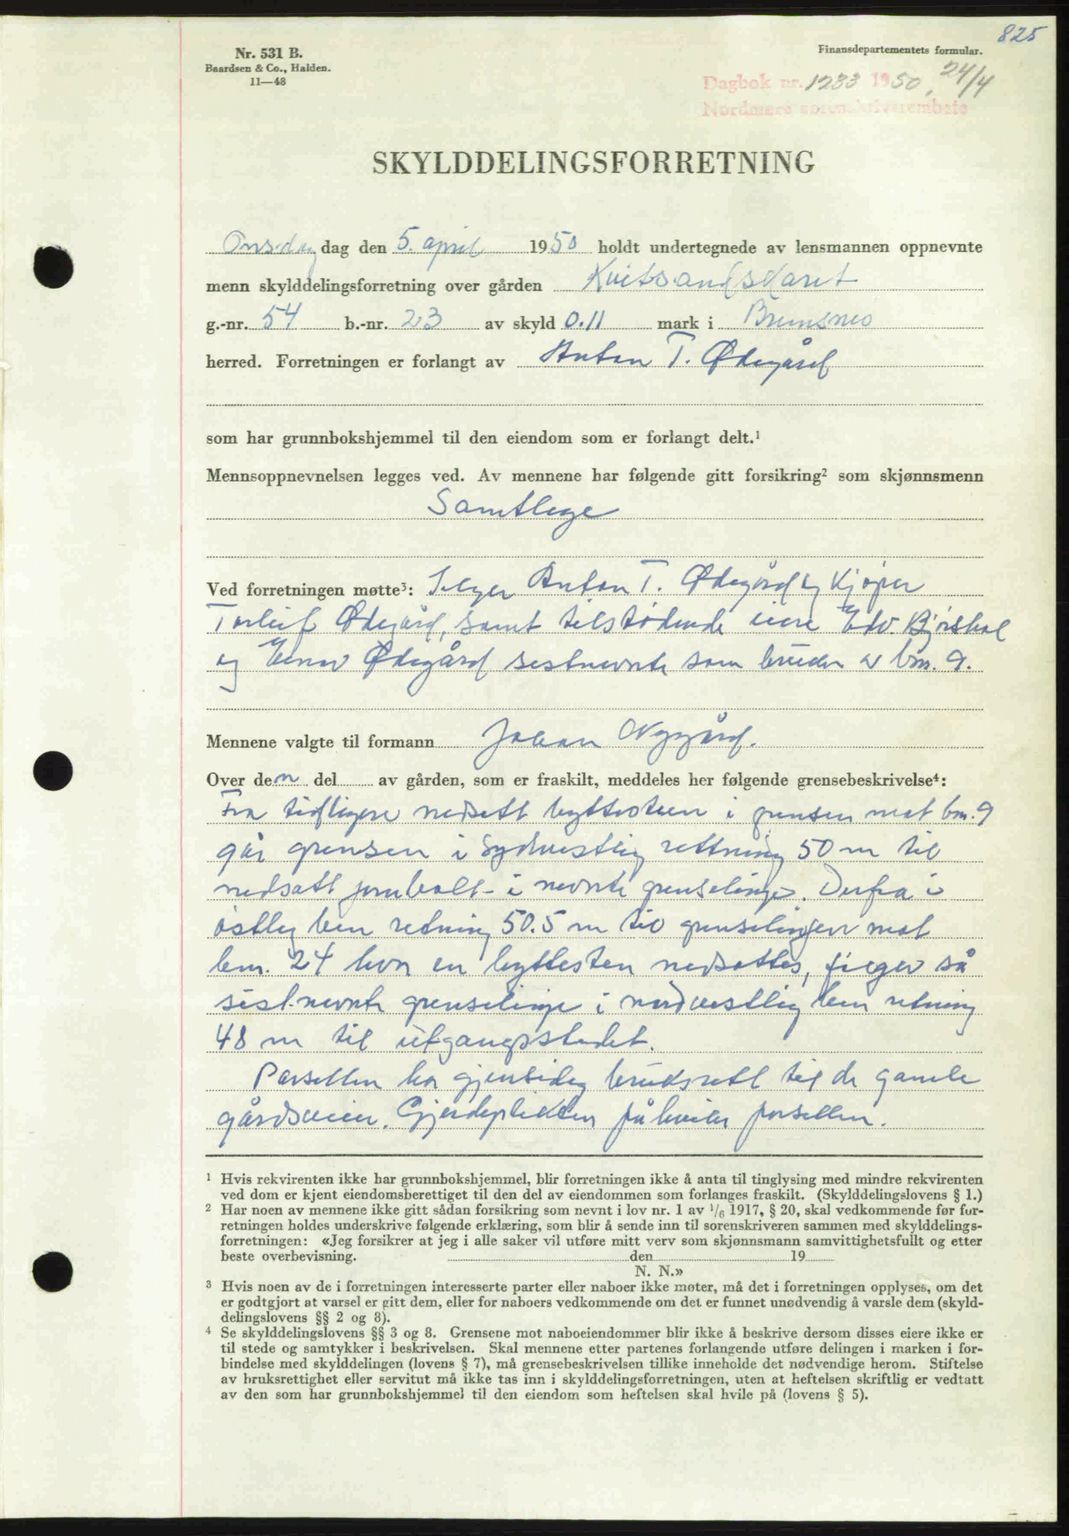 825
Nr. 531 B.
Baardsen & Co., Halden.
11—48
Finansdepartementets formular.
Dagbok nr. 1233 1950, 24/4
Nordmøre sorenskriverembete
SKYLDDELINGSFORRETNING
Onsdag dag den 5. april 1950 holdt undertegnede av lensmannen oppnevnte
menn skylddelingsforretning over gården Kvitsandskaret
g.-nr. 54 b.-nr. 23 av skyld 0.11 mark i Bremsnes
herred. Forretningen er forlangt av Anton T. Ødegård
som har grunnbokshjemmel til den eiendom som er forlangt delt.¹
Mennsoppnevnelsen legges ved. Av mennene har følgende gitt forsikring² som skjønnsmenn
Samtlege
Ved forretningen møtte³: Selger Anton T. Ødegård og Kjøper
Torleif Ødegård, samt tilstødende eiere Edv. Bjørshol
og Einar Ødegård sistnevnte som bruker av bnr. 9.
Mennene valgte til formann Johan Nygård.
Over den del av gården, som er fraskilt, meddeles her følgende grensebeskrivelse⁴:
Fra tidligere nedsatt byttesteen i grensen mot bnr. 9
går grensen i Sydvestlig rettning 50 m til
nedsatt jernbolt i nevnte grenselinje. Derfra i
østlig len retning 50.5 m til grenselinjen mot
bnr. 24 hvor en byttesten nedsattes, følger så
sistnevnte grenselinje i nordvestlig len retning
48 m til utgangsstedet.
Parsellen har gjensidig bruksrett til de gamle
gårdsveier. Gjerdeplikten påhviler parsellen.
¹ Hvis rekvirenten ikke har grunnbokshjemmel, blir forretningen ikke å anta til tinglysing med mindre rekvirenten
ved dom er kjent eiendomsberettiget til den del av eiendommen som forlanges fraskilt. (Skylddelingslovens § 1.)
² Har noen av mennene ikke gitt sådan forsikring som nevnt i lov nr. 1 av 1/6 1917, § 20, skal vedkommende før for-
retningen holdes underskrive følgende erklæring, som blir å sende inn til sorenskriveren sammen med skylddelings-
forretningen: «Jeg forsikrer at jeg i alle saker vil utføre mitt verv som skjønnsmann samvittighetsfullt og etter
beste overbevisning. den 19
N. N.»
³ Hvis noen av de i forretningen interesserte parter eller naboer ikke møter, må det i forretningen opplyses, om det
er godtgjort at varsel er gitt dem, eller for naboers vedkommende om det er funnet unødvendig å varsle dem (skyld-
delingslovens §§ 2 og 3).
⁴ Se skylddelingslovens §§ 3 og 8. Grensene mot naboeiendommer blir ikke å beskrive dersom disses eiere ikke er
til stede og samtykker i beskrivelsen. Skal mennene etter partenes forlangende utføre delingen i marken i for-
bindelse med skylddelingen (lovens § 7), må grensebeskrivelsen tillike inneholde det nødvendige herom. Stiftelse
av bruksrettighet eller servitut må ikke tas inn i skylddelingsforretningen, uten at heftelsen skriftlig er vedtatt
av den som har grunnbokshjemmel til den eiendom som heftelsen skal hvile på (lovens § 5).